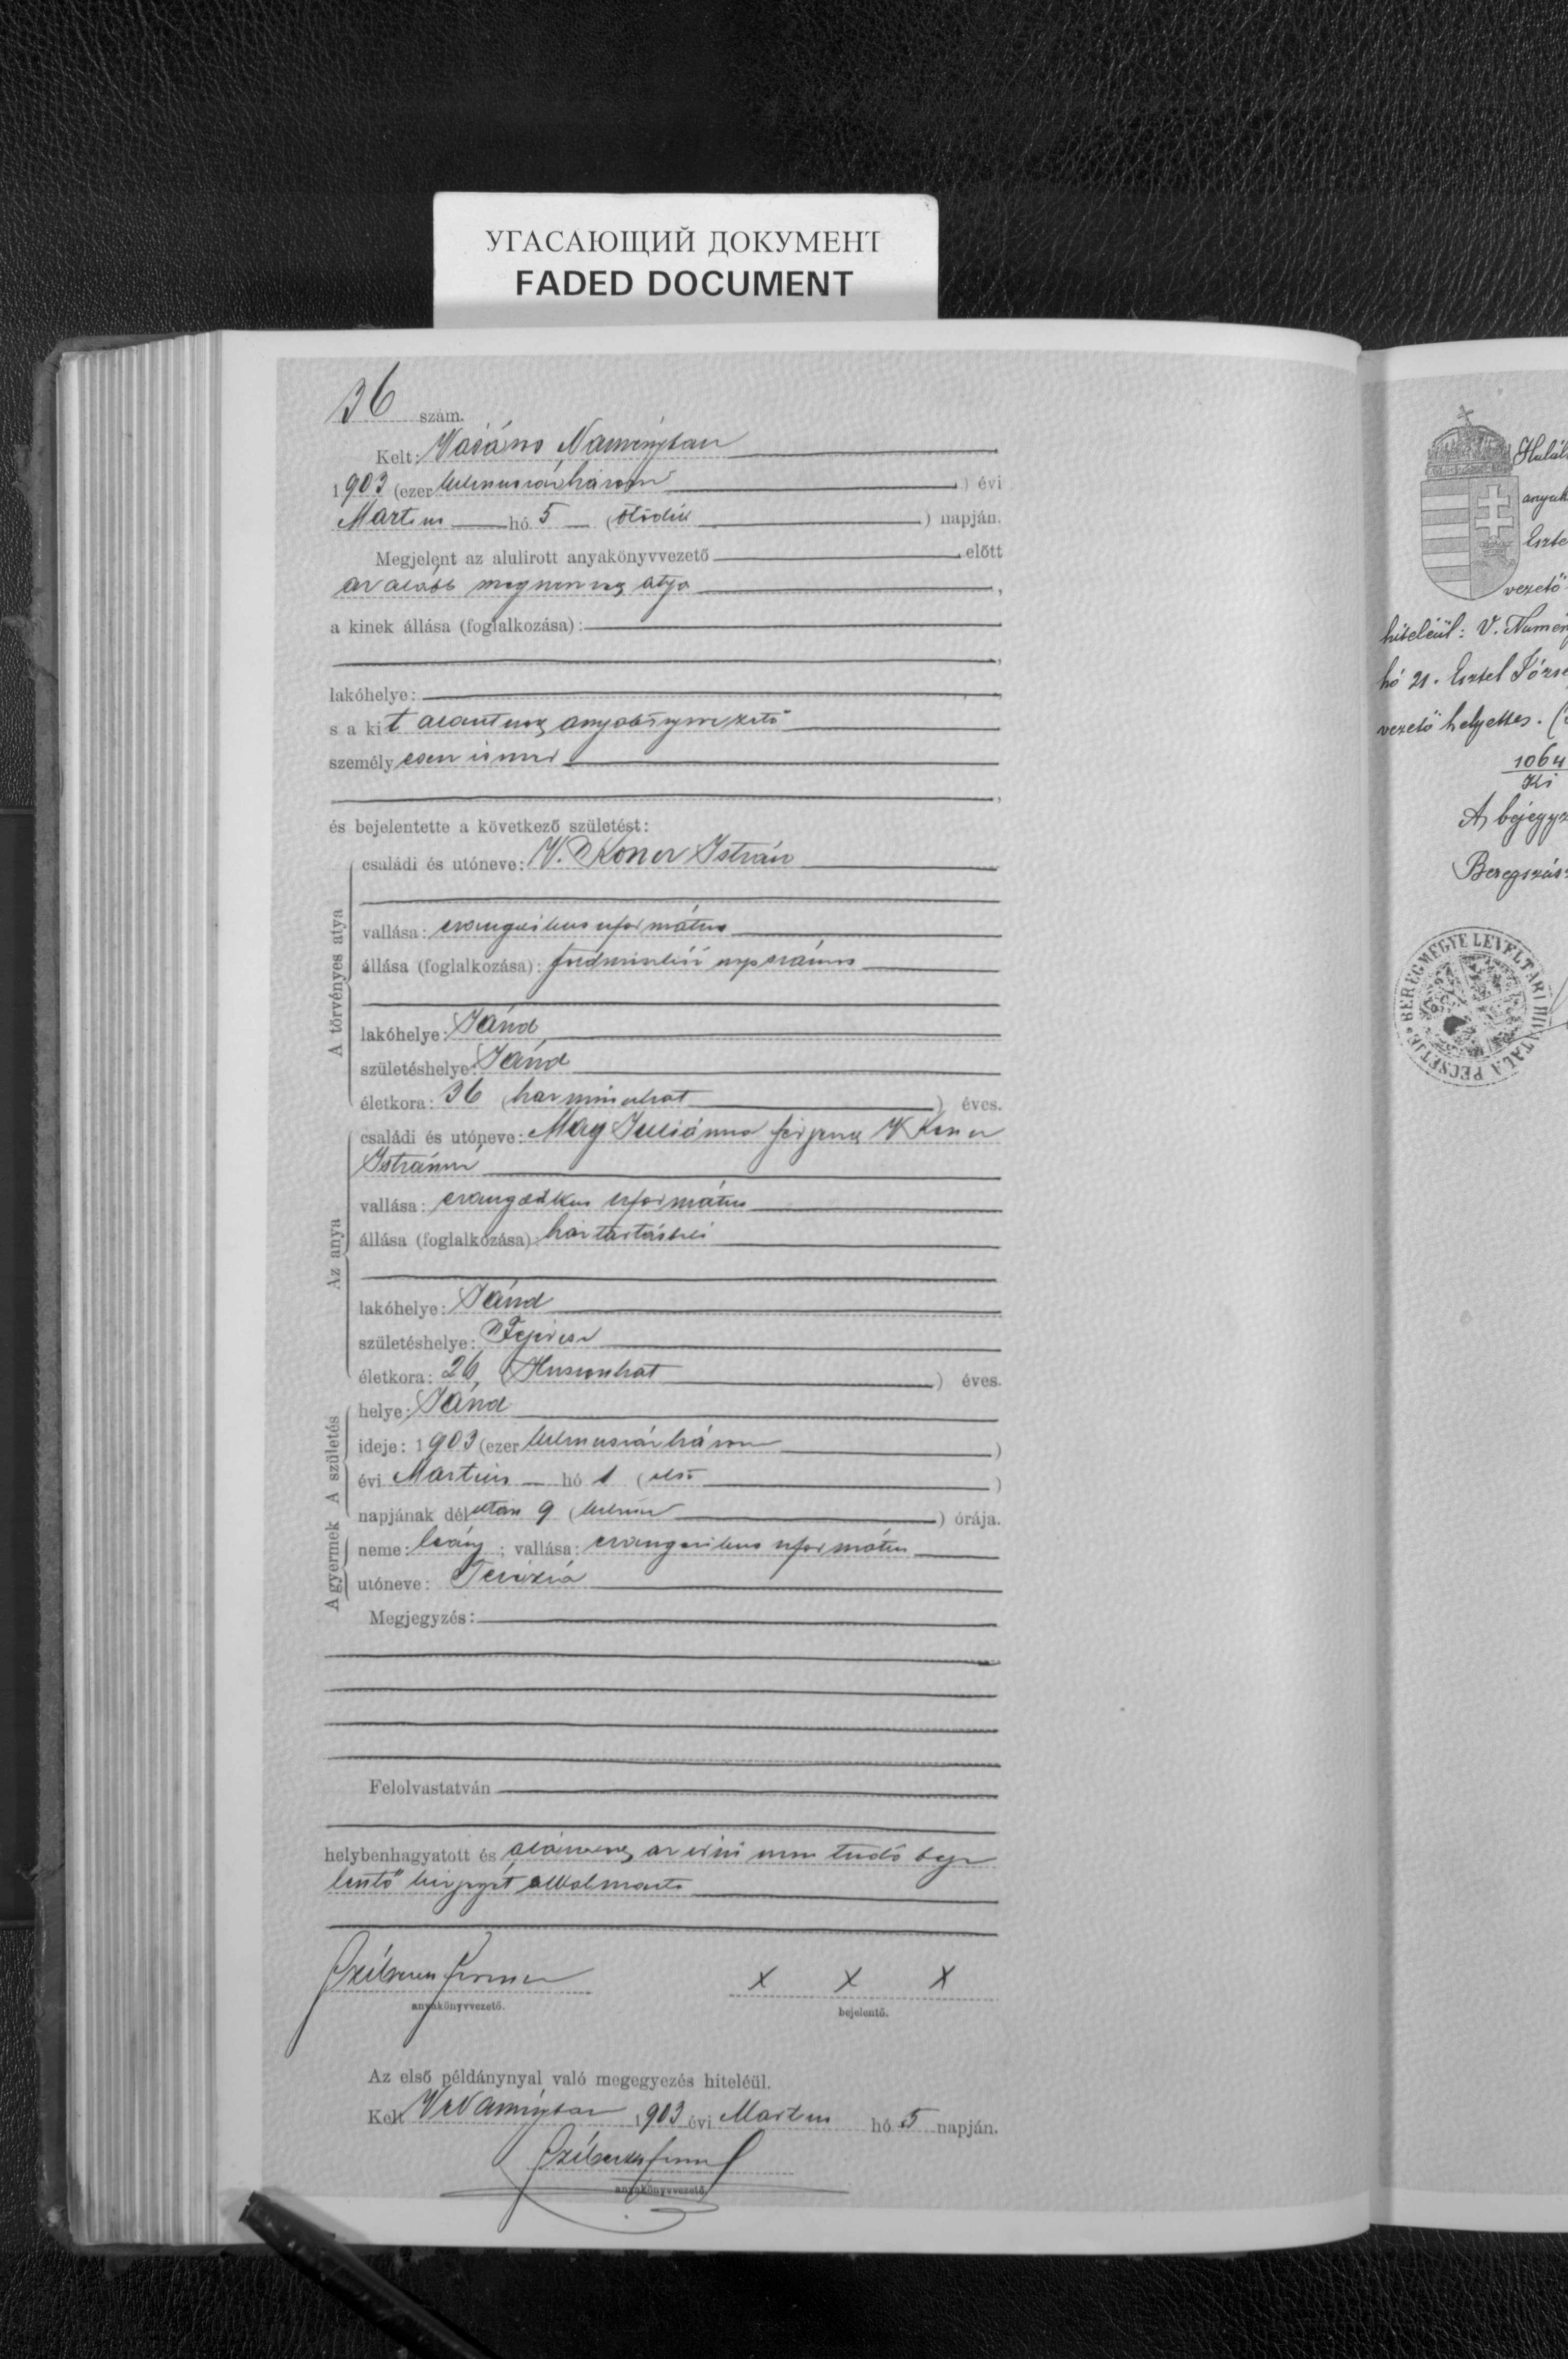 УГАСАЮЩИЙ ДОКУМЕНТ
FADED DOCUMENT
36 szám.
Kelt: Vásáros Naményban
1903 (ezer kilencszázhárom) évi
Martius hó 5 (ötödik) napján.
Megjelent az alulirott anyakönyvvezető előtt
az alább megnevezett atya,
a kinek állása (foglalkozása):
lakóhelye:
s a kit alantirott anyakönyvvezető
személyesen ismer
és bejelentette a következő születést:
A törvényes atya
családi és utóneve: V. István
vallása: evangelikus református
állása (foglalkozása): földmivelő napszámos
lakóhelye: Jánd
születéshelye: Jánd
életkora: 36 (harminchat) éves.
Az anya
családi és utóneve: Mag Juliánna férjezett V
Istvánné
vallása: evangelikus református
állása (foglalkozása): háztartásbeli
lakóhelye: Jánd
születéshelye:
életkora: 26, (Huszonhat) éves.
A születés
helye: Jánd
ideje: 1903 (ezer kilencszázhárom)
évi Martius hó 1 (első)
napjának délután 9 (kilenc) órája.
A gyermek
neme: leány; vallása: evangelikus református
utóneve: Terézia
Megjegyzés:
Felolvastatván
helybenhagyatott és aláiratott az irni nem tudó beje
lentő kézjegyét alkalmazta
anyakönyvvezető.
x x x
bejelentő.
Az első példánynyal való megegyezés hiteléül.
Kelt V Naményban 1903 évi Martius hó 5 napján.
anyakönyvvezető.
anyak
vezető
hiteléül: V. Namén
hó 21. Esztel Józse
vezető helyettes. (
1064
Ki
A bejegyz
Beregszász
BEREGMEGYE LEVÉLTÁRI HIVATALA PECSÉTJE